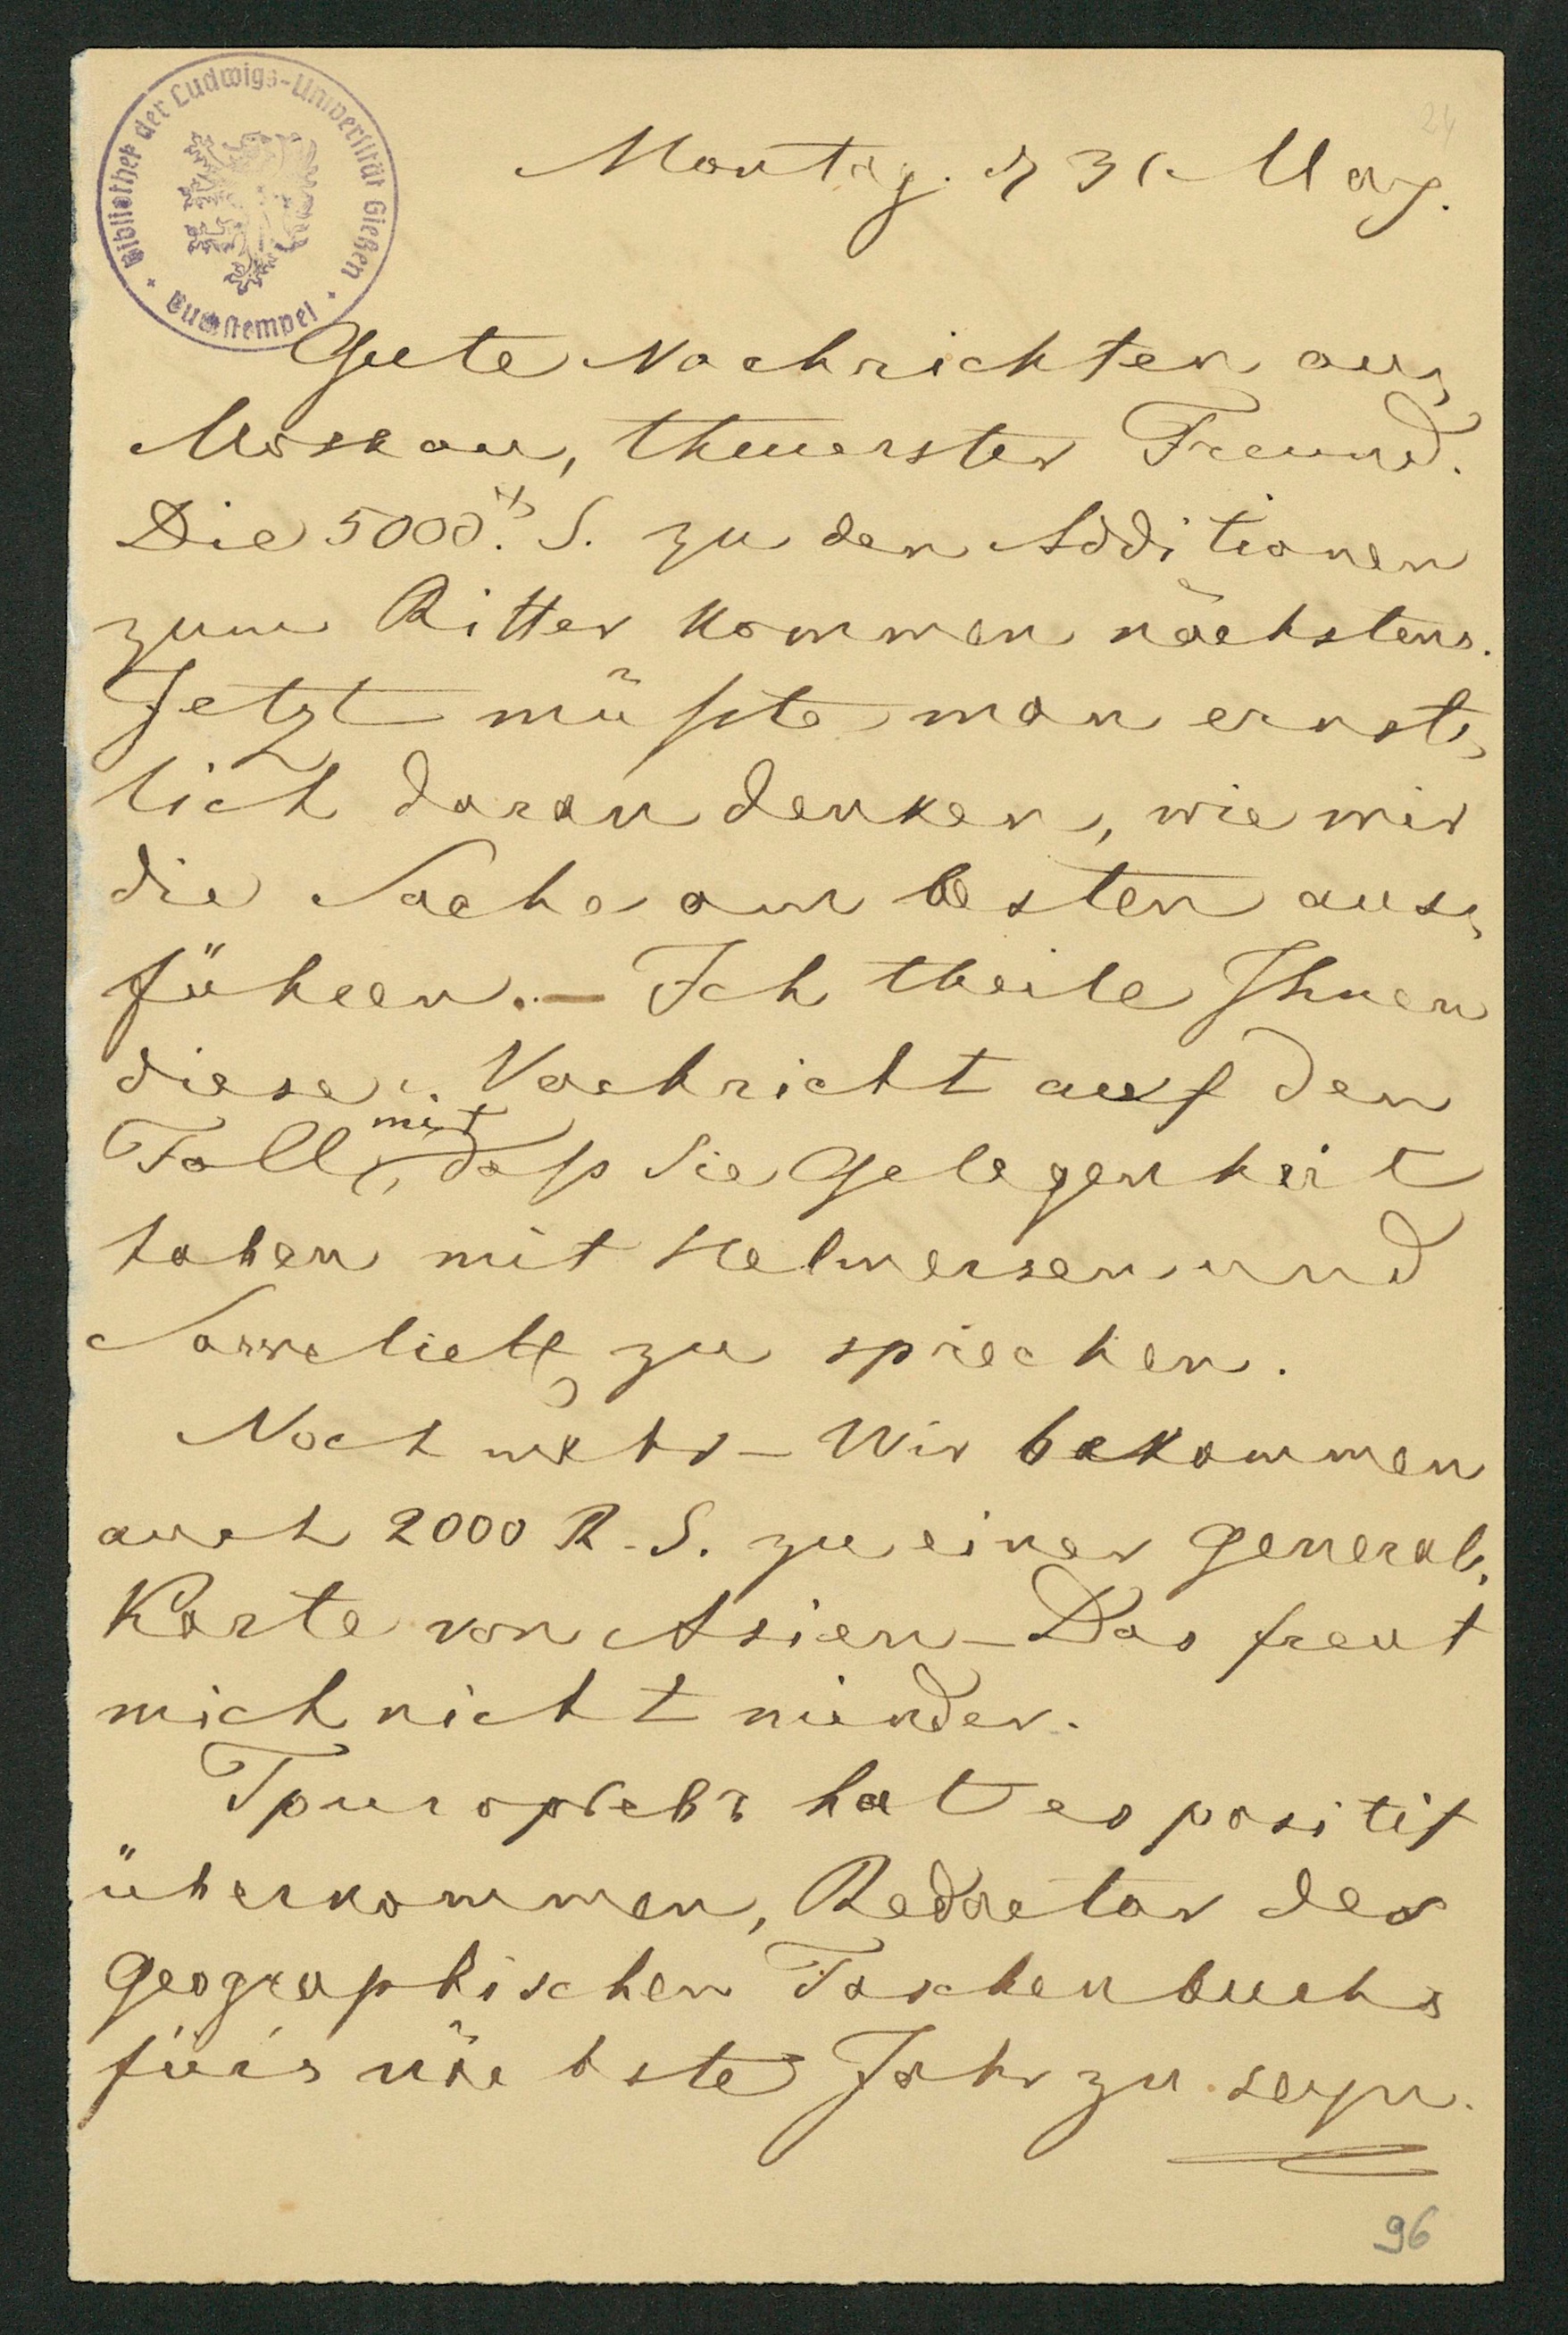 Bibliothek der Ludwigs-Universität Gießen
Buchstempel
24
Montag. d 31 May.
Gute Nachrichten aus
Moskau, theuerster Freund.
Die 5000. S. zu den Additionen
zum Ritter kommen nächstens.
Jetzt müßte man ernst-
lich daran denken, wie wir
die Sache am besten aus-
führen. – Ich theile Ihnen
diese Nachricht auf den
mit
Fall, daß Sie Gelegenheit
haben mit Helmersen und
zu sprechen.
Noch mehr – Wir bekommen
auch 2000 R. S. zu einer General-
Karte von Asien – Das freut
mich nicht minder.
Григорьевъ hat es positif
überkommen, Redactor des
geographischen Taschenbuchs
für's nächste Jahr zu seyn.
96